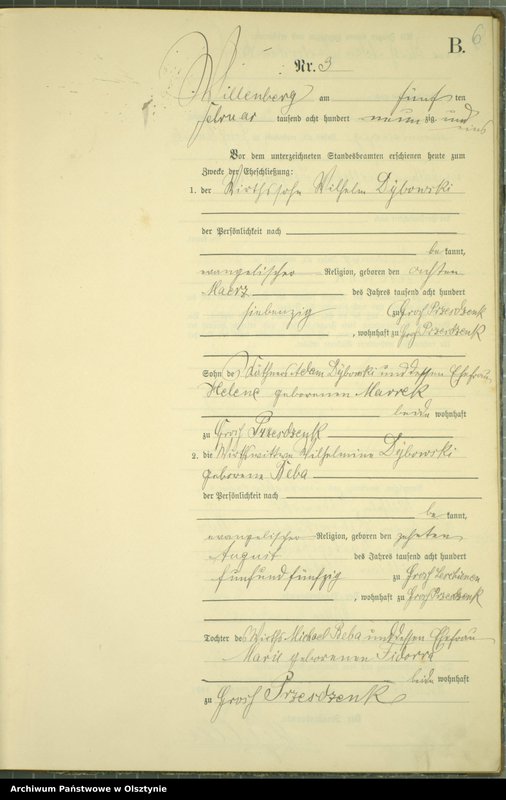 B.
6
Nr. 3
Willenberg am fünf ten
Februar tausend acht hundert neunzig und
eins
Vor dem unterzeichneten Standesbeamten erschienen heute zum
Zwecke der Eheschließung:
1. der Wirthssohn Wilhelm Dÿbowski
der Persönlichkeit nach
be kannt,
evangelischer Religion, geboren den achten
Maerz des Jahres tausend acht hundert
siebenzig zu Groß Przesdzenk
, wohnhaft zu Groß Przesdzenk
Sohn des Käthners Adam Dÿbowski und dessen Ehefrau
Helene geborenen Marrek
beide wohnhaft
zu Groß Przesdzenk
2. die Wilhelmine Dÿbowski
geborene Beba
der Persönlichkeit nach
be kannt,
evangelischer Religion, geboren den zehnten
August des Jahres tausend acht hundert
fünfundfünfzig zu Groß
, wohnhaft zu Groß Przesdzenk
Tochter des Wirths Michael Beba und dessen Ehefrau
Marie geborenen Fidorra
beide wohnhaft
zu Groß Przesdzenk
Archiwum Państwowe w Olsztynie